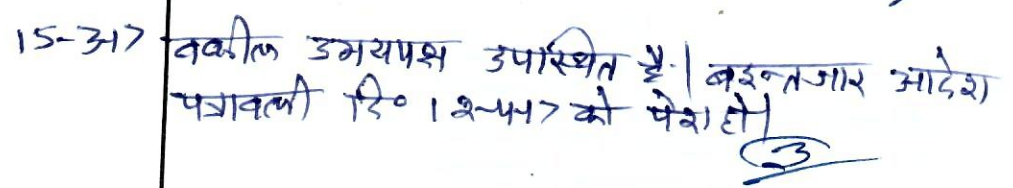 15-3-17 वकील उभयपक्ष उपस्थित है। बइन्तजार आदेश
पत्रावली दि० 12-4-17 को पेश हो।